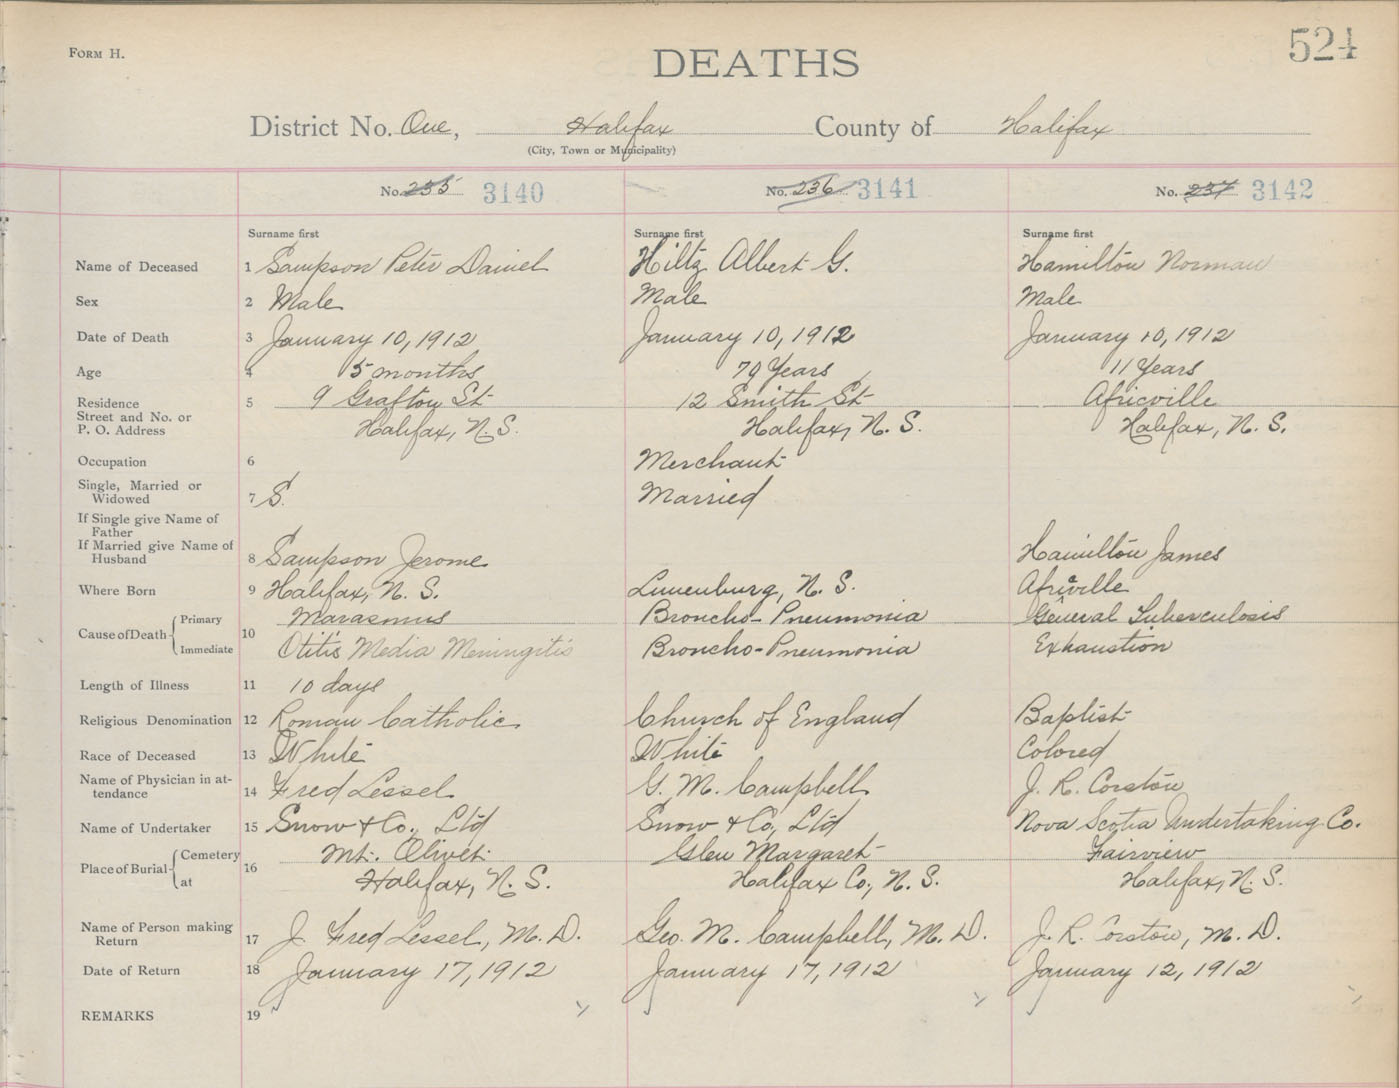 FORM H.
DEATHS
524
District No. One, Halifax County of Halifax
(City, Town or Municipality)
No. 235 3140 No. 236 3141 No. 237 3142
Surname first Surname first Surname first
Name of Deceased 1 Sampson Peter Daniel Hiltz Albert G. Hamilton Norman
Sex 2 Male Male Male
Date of Death 3 January 10, 1912 January 10, 1912 January 10, 1912
Age 4 5 months 79 Years 11 Years
Residence 5 9 Grafton St 12 Smith St Africville
Street and No. or
P. O. Address Halifax, N.S. Halifax, N.S. Halifax, N.S.
Occupation 6 Merchant
Single, Married or
Widowed 7 S. Married
If Single give Name of
Father
If Married give Name of
Husband 8 Sampson Jerome Hamilton James
Where Born 9 Halifax, N.S. Lunenburg, N.S. Africville
Cause of Death Primary 10 Marasmus Broncho-Pneumonia General Tuberculosis
Immediate Otitis Media Meningitis Broncho-Pneumonia Exhaustion
Length of Illness 11 10 days
Religious Denomination 12 Roman Catholic Church of England Baptist
Race of Deceased 13 White White Colored
Name of Physician in at-
tendance 14 Fred Lessel G. M. Campbell J. R. Corston
Name of Undertaker 15 Snow & Co., Ltd Snow & Co, Ltd Nova Scotia Undertaking Co.
Place of Burial Cemetery 16 Mt. Olivet Glen Margaret Fairview
at Halifax, N.S. Halifax Co., N.S. Halifax, N.S.
Name of Person making
Return 17 J. Fred Lessel, M.D. Geo. M. Campbell, M.D. J. R. Corston, M.D.
Date of Return 18 January 17, 1912 January 17, 1912 January 12, 1912
REMARKS 19